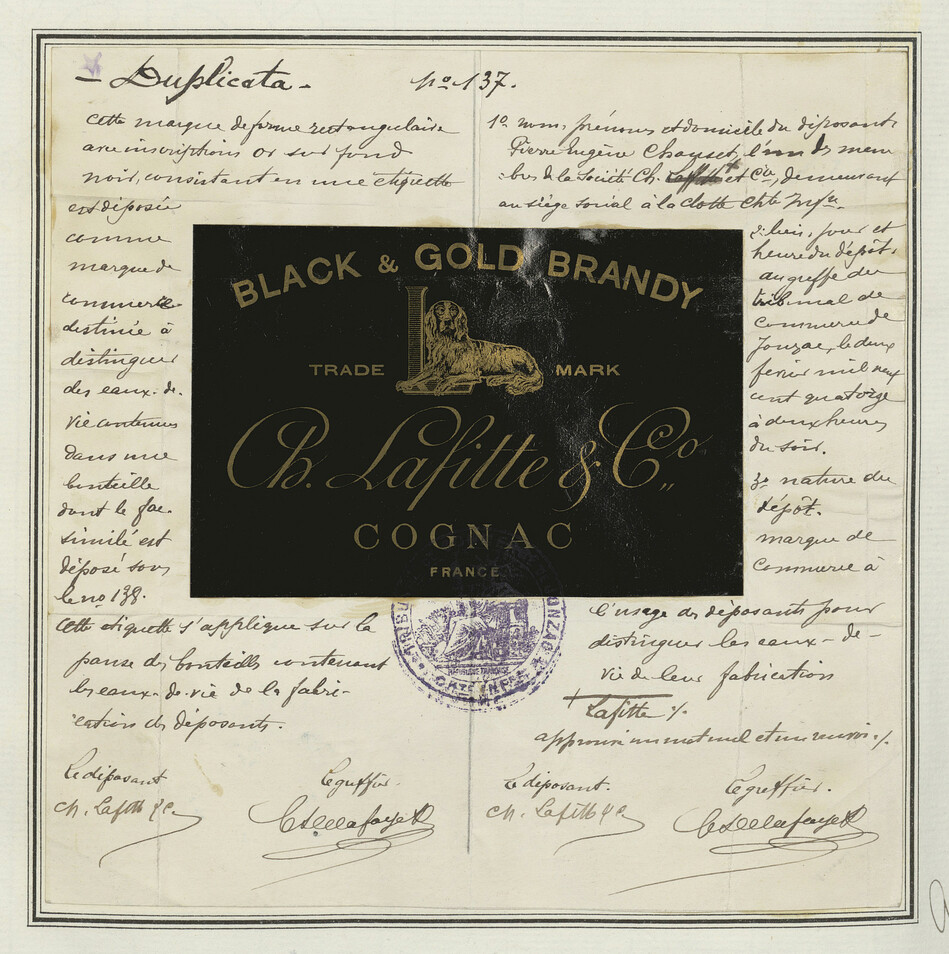 - Duplicata -
No 137.
Cette marque de forme rectangulaire
avec inscriptions or sur fond
noir, consistant en une étiquette
est déposée
comme
marque de
commerce
destinée à
distinguer
des eaux-de-
vie contenues
dans une
bouteille
dont le fac-
similé est
déposé sous
le no 138.
Cette étiquette s'applique sur la
panse des bouteilles contenant
les eaux-de-vie de la fabri-
cation des déposants.
Le déposant
Ch. Lafitte & Co
Le greffier.
1o noms, prénoms et domicile du déposant
Pierre Eugène l'un des mem
bres de la Société Ch. et Cie, demeurant
au siège social à la Clotte Chte Infre.
2o lieu, jour et
heure du dépôt.
au greffe du
tribunal de
Commerce de
Jonzac, le deux
février mil neuf
cent quatorze
à deux heures
du soir.
3o nature du
dépôt.
marque de
Commerce à
l'usage des déposants pour
distinguer les eaux-de-
vie de leur fabrication
+ Lafitte ./.
approuvé un mot nul et un renvoi ./.
Le déposant.
Ch. Lafitte & Co
Le greffier.
BLACK & GOLD BRANDY
TRADE MARK
Ch. Lafitte & Co,,
COGNAC
FRANCE
TRIBU ONZAC
RÉPUBLIQUE FRANÇAISE
CHTE INFRE